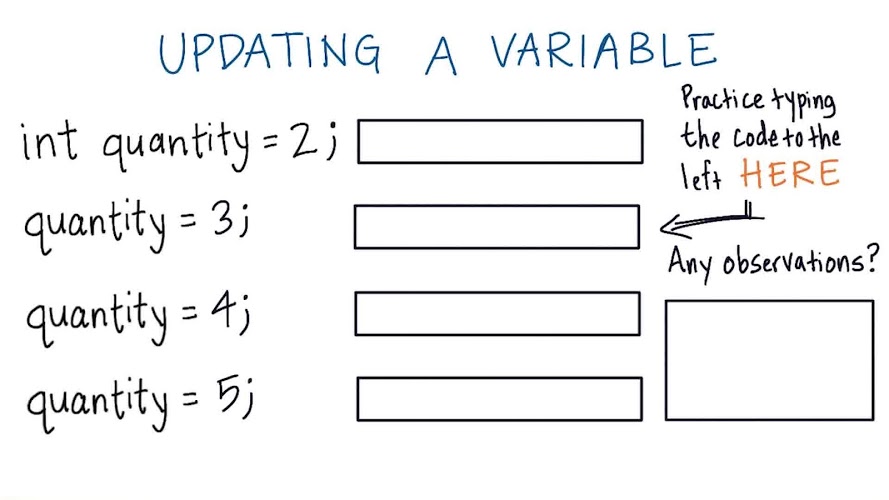 UPDATING A VARIABLE
int quantity = 2;
quantity = 3;
quantity = 4;
quantity = 5;
Practice typing
the code to the
left HERE
Any observations?